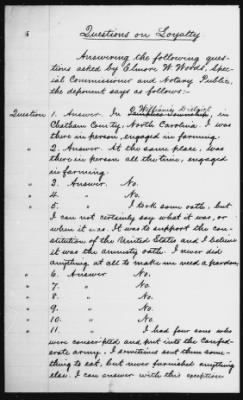 5
Questions on Loyalty
Answering the following ques-
tions asked by Elmore W. Woods, Spec-
ial Commissioner and Notary Public,
the deponent says as follows:-
Williams District
Question 1. Answer. In Township, in
Chatham County, North Carolina. I was
there in person, engaged in farming.
" 2. Answer. At the same place, was
there in person all the time, engaged
in farming.
" 3. Answer. No.
" 4. " No.
" 5. " I took some oath, but
I can not certainly say what it was, or
when it was. It was to support the con-
stitution of the United States and I believe
it was the amnesty oath. I never did
anything at all to make me need a pardon.
" 6. Answer No.
" 7. " No.
" 8. " No.
" 9. " No.
" 10. " No.
" 11. " I had four sons who
were conscripted and put into the Confed-
erate army. I sometimes sent them some-
thing to eat, but never furnished anything
else. I can answer with this exception